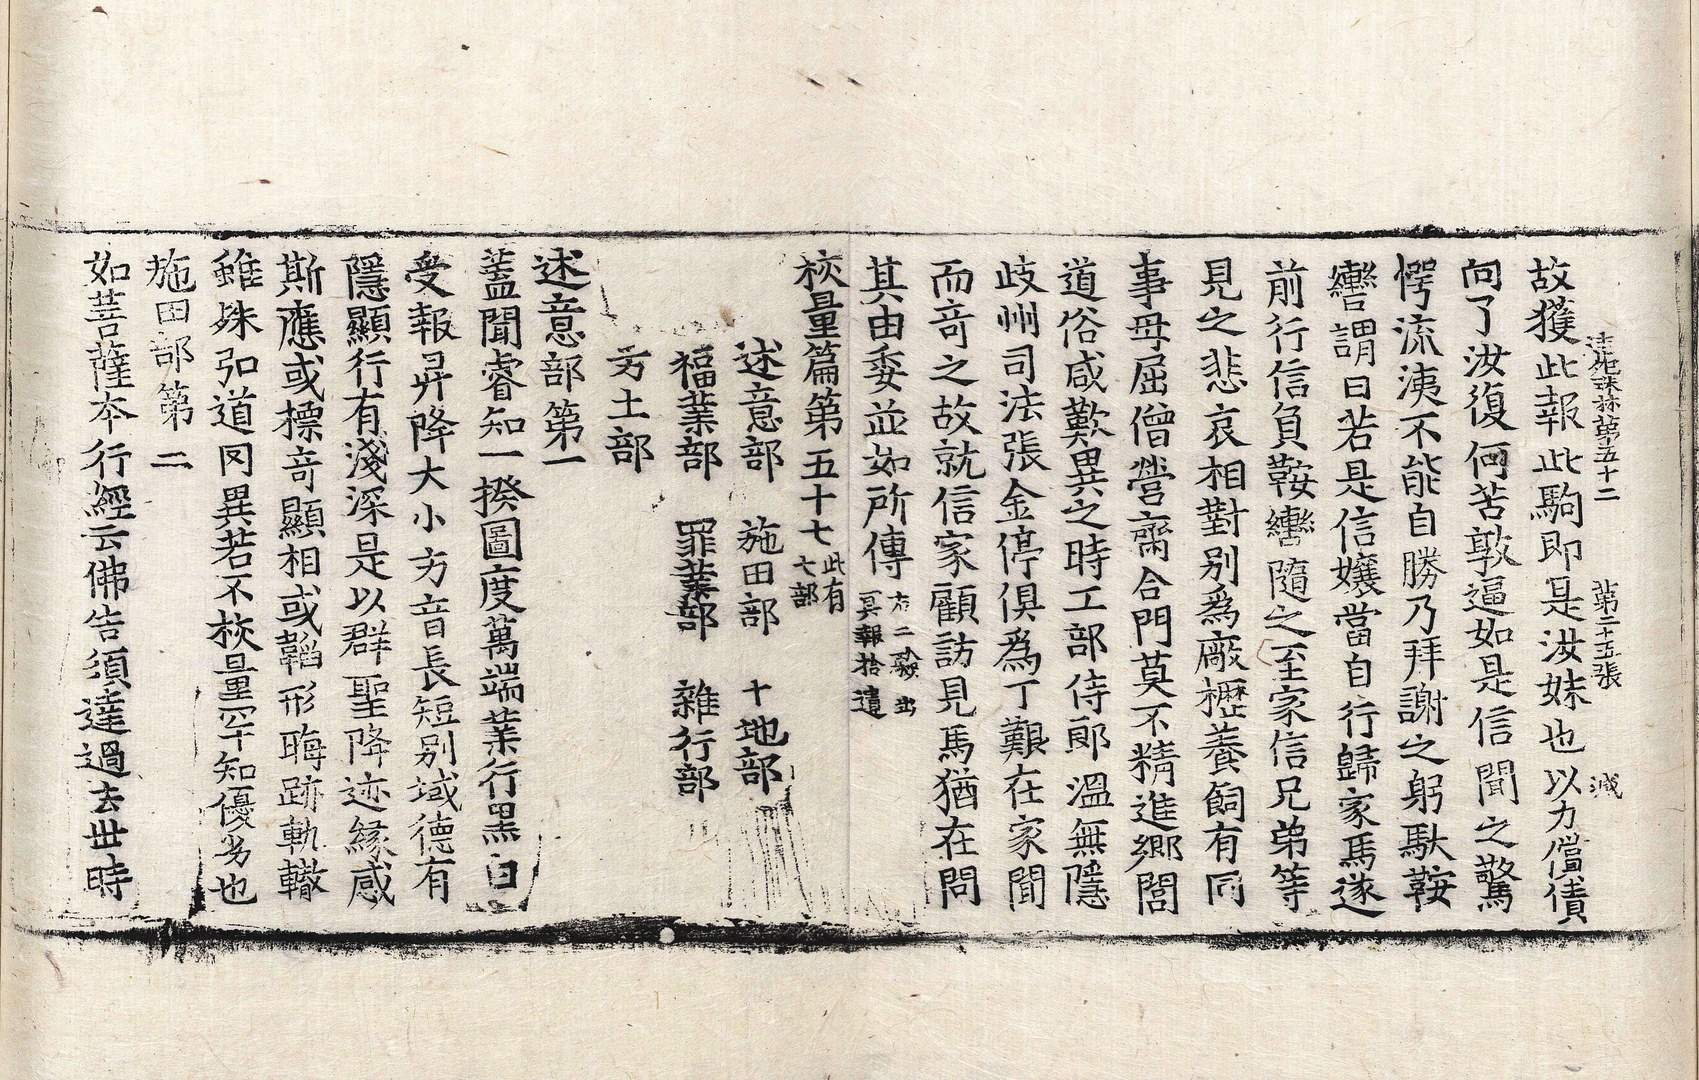 法苑珠林第五十二 第二十五張 減
故獲此報此駒即是汝妹也以力償債
向了汝復何苦敦逼如是信聞之驚
愕流洟不能自勝乃拜謝之躬馱鞍
轡謂曰若是信孃當自行歸家馬遂
前行信負鞍轡隨之至家信兄弟等
見之悲哀相對别爲廠櫪養飼有同
事母屈僧營齋合門莫不精進鄉閭
道俗咸歎異之時工部侍郎溫無隱
歧州司法張金停俱爲丁艱在家聞
而竒之故就信家顧訪見馬猶在問
其由委並如所傳右二驗出冥報拾遺
校量篇第五十七此有七部
述意部 施田部 十地部
福業部 罪業部 雜行部
方土部
述意部第一
蓋聞睿知一揆圖度萬端業行黑白
受報昇降大小方音長短别域德有
隱顯行有淺深是以群聖降迹緣感
斯應或標竒顯相或韜形晦跡軌轍
雖殊弘道同異若不校量罕知優劣也
施田部第二
如菩薩本行經云佛告須達過去世時